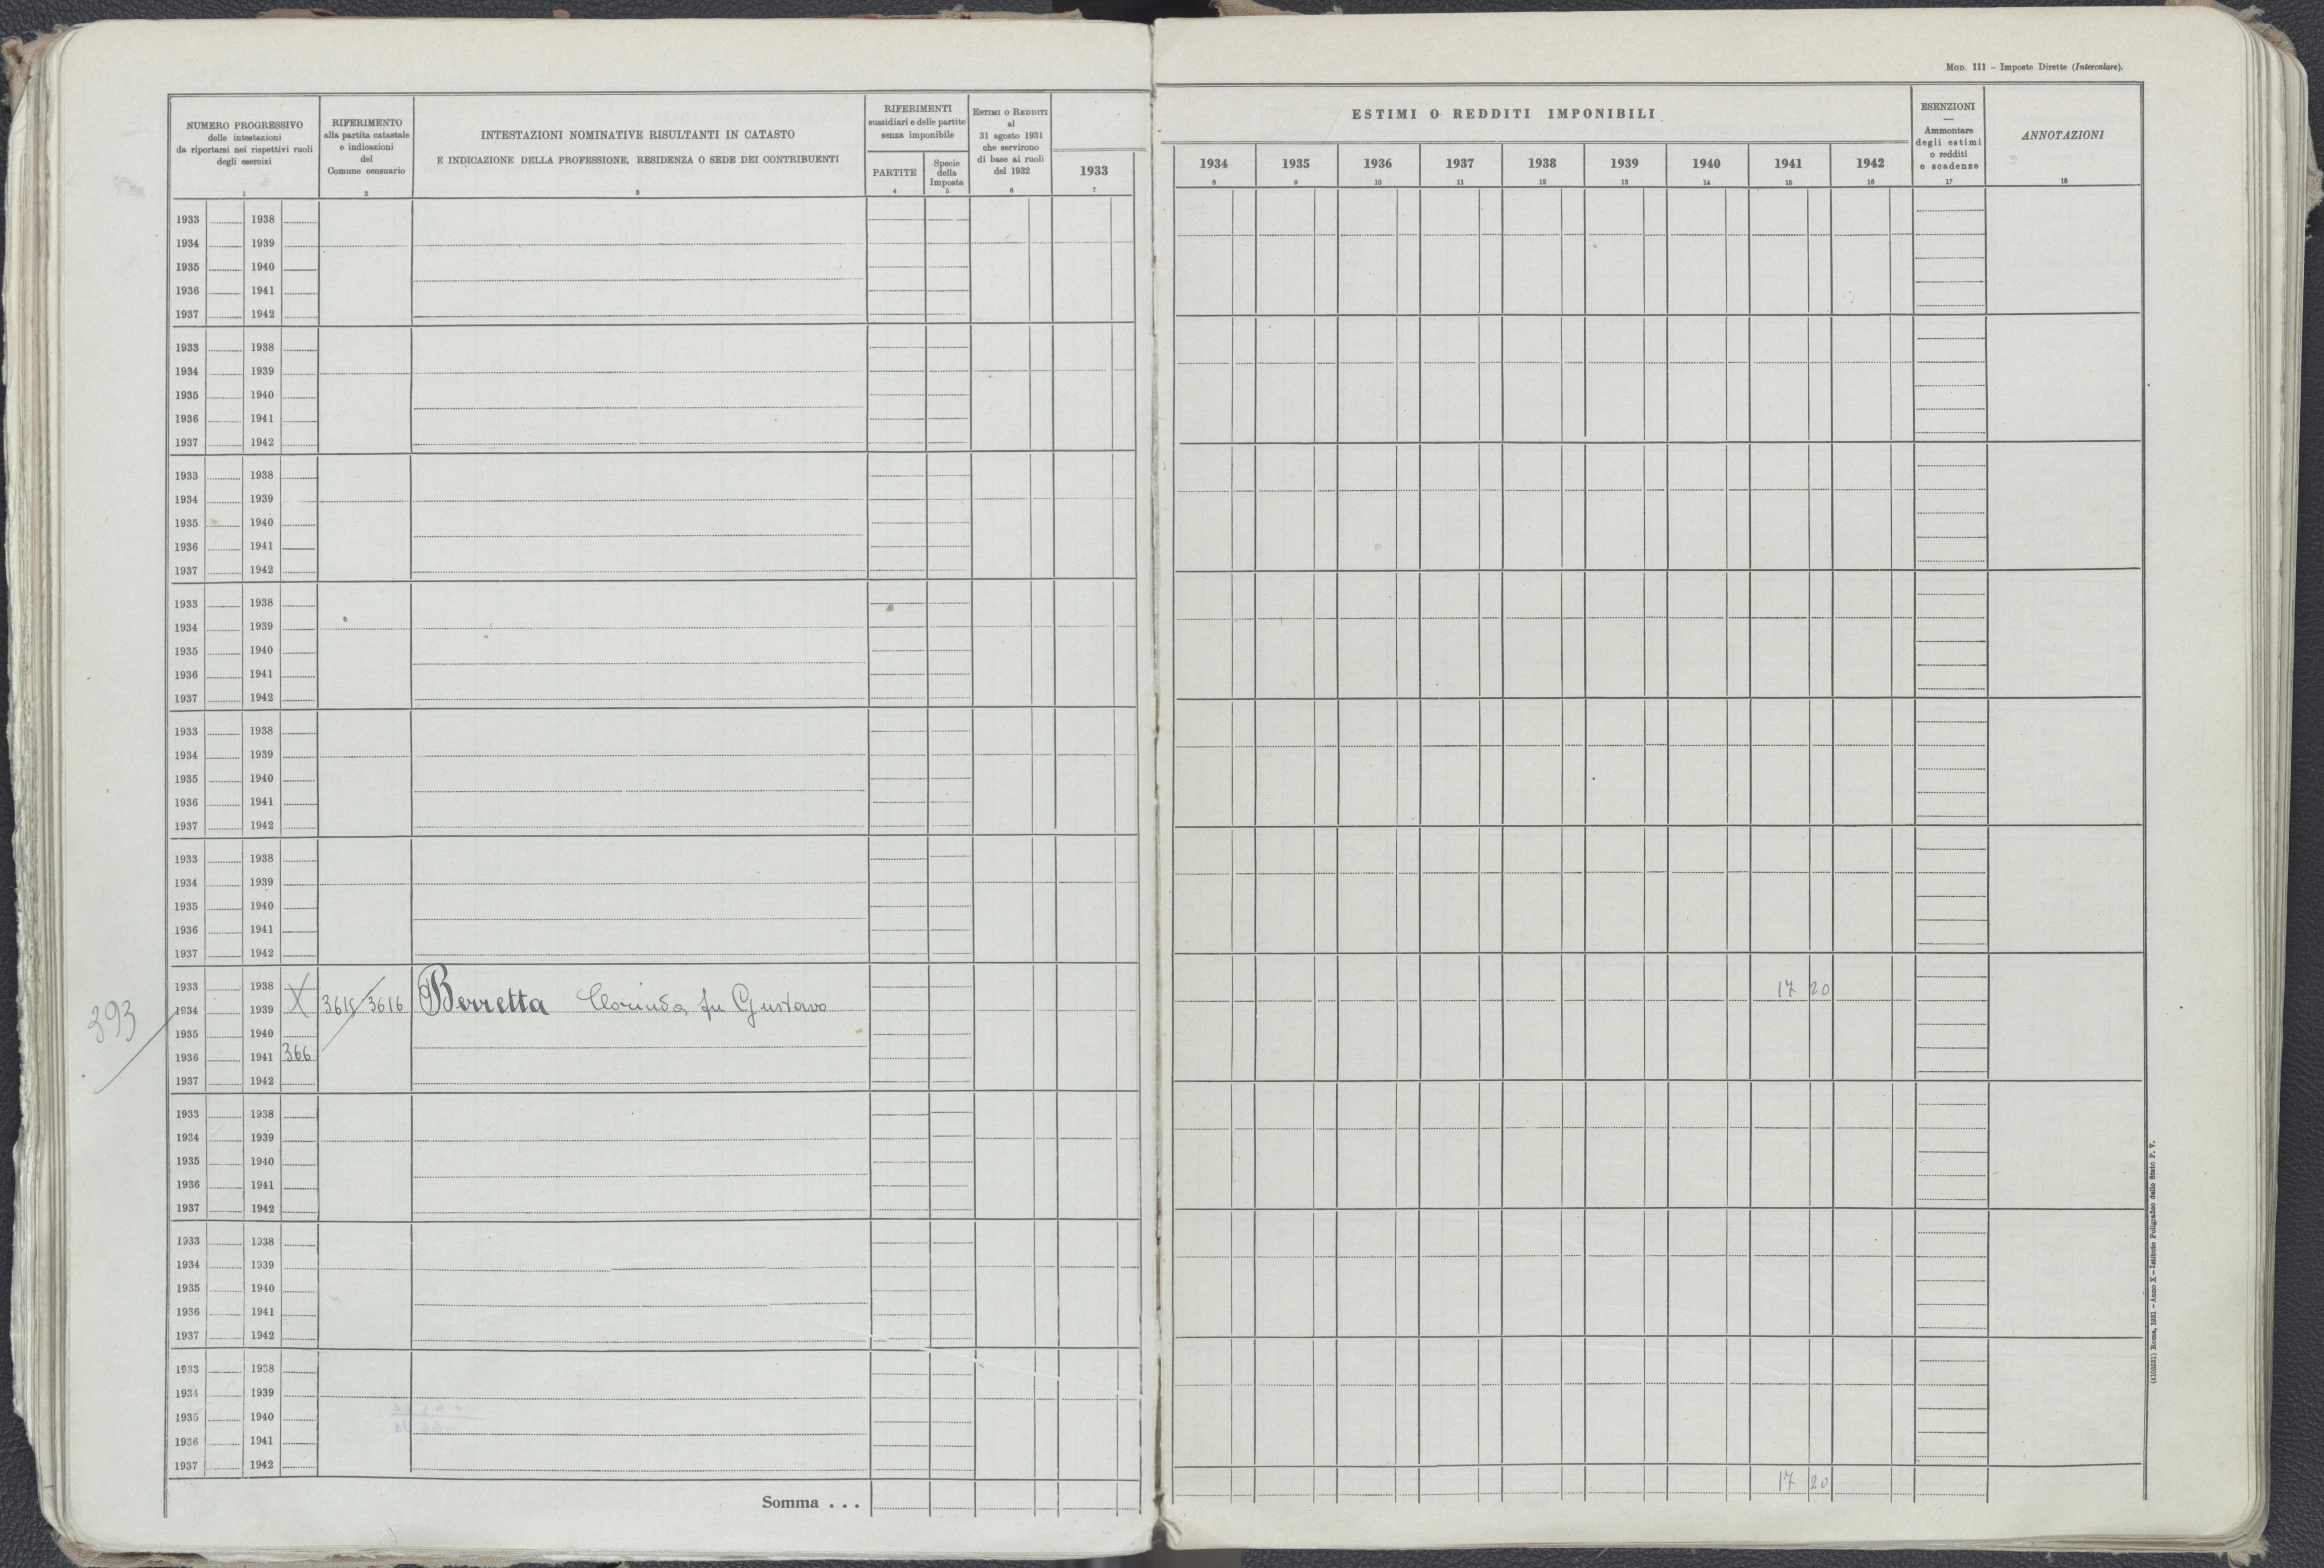 MOD. 111 – Imposte Dirette (Intercalare).
NUMERO PROGRESSIVO
delle intestazioni
da riportarsi nei rispettivi ruoli
degli esercizi
1
RIFERIMENTO
alla partita catastale
e indicazioni
del
Comune censuario
2
INTESTAZIONI NOMINATIVE RISULTANTI IN CATASTO
E INDICAZIONE DELLA PROFESSIONE, RESIDENZA O SEDE DEI CONTRIBUENTI
3
RIFERIMENTI
sussidiari e delle partite
senza imponibile
PARTITE
4
Specie
della
Imposta
5
ESTIMI O REDDITI
al
31 agosto 1931
che servirono
di base ai ruoli
del 1932
6
1933
7
ESTIMI O REDDITI IMPONIBILI
1934 1935 1936 1937 1938 1939 1940 1941 1942
8 9 10 11 12 13 14 15 16
ESENZIONI
—
Ammontare
degli estimi
o redditi
e scadenze
17
ANNOTAZIONI
18
1933 1938
1934 1939
1935 1940
1936 1941
1937 1942
1933 1938
1934 1939
1935 1940
1936 1941
1937 1942
1933 1938
1934 1939
1935 1940
1936 1941
1937 1942
1933 1938
1934 1939
1935 1940
1936 1941
1937 1942
1933 1938
1934 1939
1935 1940
1936 1941
1937 1942
1933 1938
1934 1939
1935 1940
1936 1941
1937 1942
1933 1938 17 20
393 1934 1939 X 3615 3616 Berretta Clorinda fu Gustavo
1935 1940
1936 1941 366
1937 1942
1933 1938
1934 1939
1935 1940
1936 1941
1937 1942
1933 1938
1934 1939
1935 1940
1936 1941
1937 1942
1933 1938
1934 1939
1935 1940
1936 1941
1937 1942
Somma . . . 17 20
(4103531) Roma, 1931 – Anno X – Istituto Poligrafico dello Stato P. V.